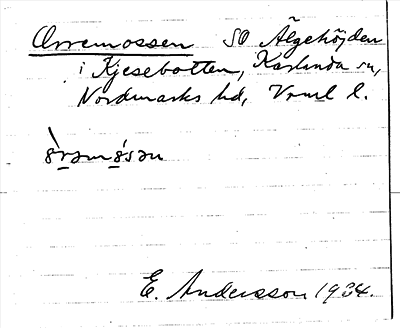 Orremossen SO Älgehöjden
i Kjesebotten, Karlanda sn,
Nordmarks hd, Vrml l.
E. Andersson 1934.